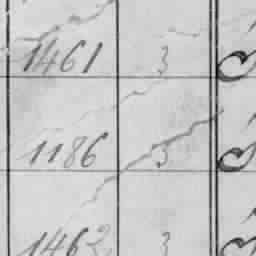 1461 3
1186 3
1462 3